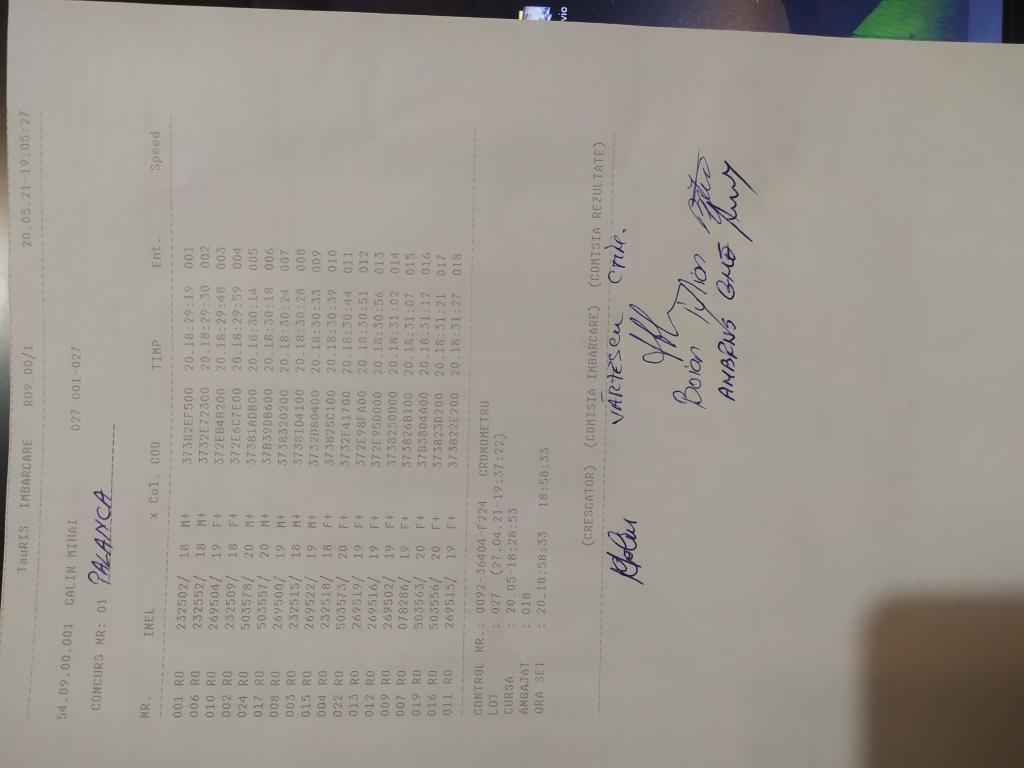 TauRIS IMBARCARE R09.00/1 20.05.21-19:05:27
54.09.00.001 CALIN MIHAI 027 001-027
CONCURS NR: 01 PALANCA
NR. INEL x Col. COD TIMP Ent. Speed
001 RO 232502/ 18 M+ 37382EF500 20.18:29:19 001
006 RO 232552/ 18 M+ 3732E72300 20.18:29:30 002
010 RO 269504/ 19 F+ 372EB4B200 20.18:29:48 003
002 RO 232509/ 18 F+ 372E6C7E00 20.18:29:59 004
024 RO 503578/ 20 M+ 37381ADB00 20.18:30:14 005
017 RO 503557/ 20 M+ 37B39DB600 20.18:30:18 006
008 RO 269500/ 19 M+ 3738320200 20.18:30:24 007
003 RO 232515/ 18 M+ 37381D4100 20.18:30:28 008
015 RO 269522/ 19 M+ 3732DB0400 20.18:30:33 009
004 RO 232518/ 18 F+ 373825C100 20.18:30:39 010
022 RO 503573/ 20 F+ 3732E41700 20.18:30:44 011
013 RO 269519/ 19 F+ 372E98FA00 20.18:30:51 012
012 RO 269516/ 19 F+ 372E95D000 20.18:30:56 013
009 RO 269502/ 19 F+ 3738250D00 20.18:31:02 014
007 RO 078286/ 19 F+ 373826B100 20.18:31:07 015
019 RO 503563/ 20 F+ 37B3804A00 20.18:31:12 016
016 RO 503556/ 20 F+ 373823D200 20.18:31:21 017
011 RO 269515/ 19 F+ 373822E200 20.18:31:27 018
CONTROL NR.: 0092-36404-F224 CRONOMETRU
LOT : 027 (27.04.21-19:37:22)
CURSA : 20.05-18:28:53
ANGAJAT : 018
ORA SET : 20.18:58:33 18:58:33
(CRESCATOR) (COMISIA IMBARCARE) (COMISIA REZULTATE)
Boian